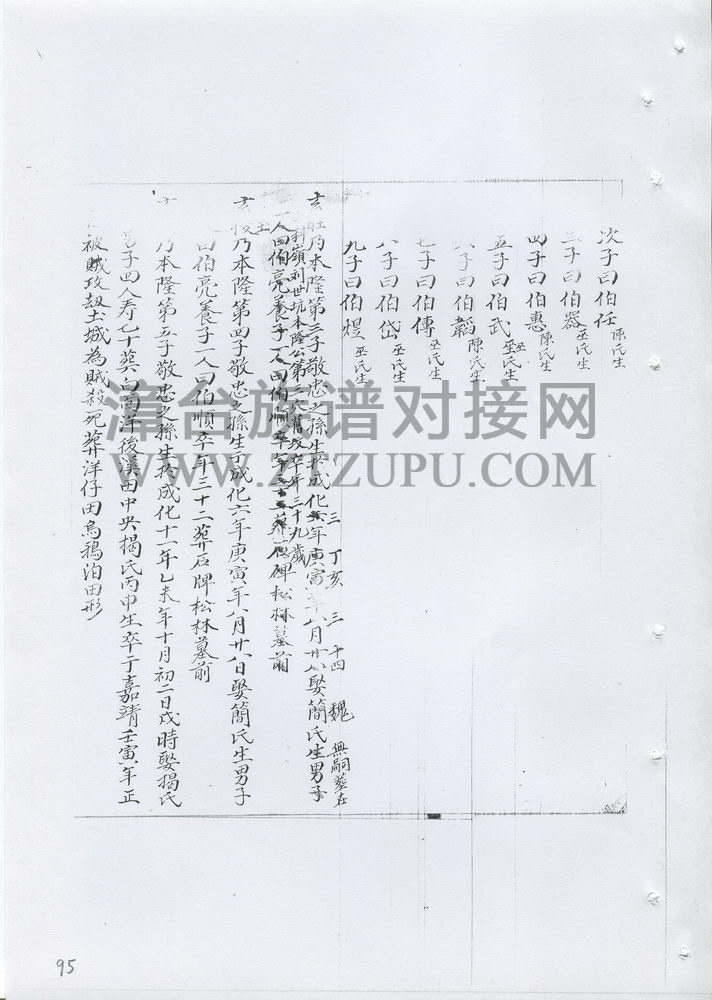 次子曰伯任 陳氏生
三子曰伯器 巫氏生
四子曰伯惠 陳氏生
五子曰伯武 巫氏生
六子曰伯韜 陳氏生
七子曰伯傳 巫氏生
八子曰伯岱 巫氏生
九子曰伯煜 巫氏生
三 丁亥 三 十四 魏 無嗣葬在
乃本隆第三子敬忠之孫生於成化年庚寅年八月廿八娶簡氏生男子
卒年三十九歲
一人曰伯亮養子一人曰伯順葬石碑松林墓前
乃本隆第四子敬忠之孫生成化六年庚寅年八月廿八日娶簡氏生男子
曰伯亮養子一人曰伯順卒年三十二葬石牌松林墓前
乃本隆第五子敬忠之孫生於成化十一年乙未年十月初二日戌時娶揭氏
男子四人寿七十葬洋後溪田中央揭氏丙申生卒于嘉靖壬寅年正
被賊攻劫土城為賊殺死葬洋仔田烏鴉泊田形
漳台族谱对接网
WWW.ZTZUPU.COM
95